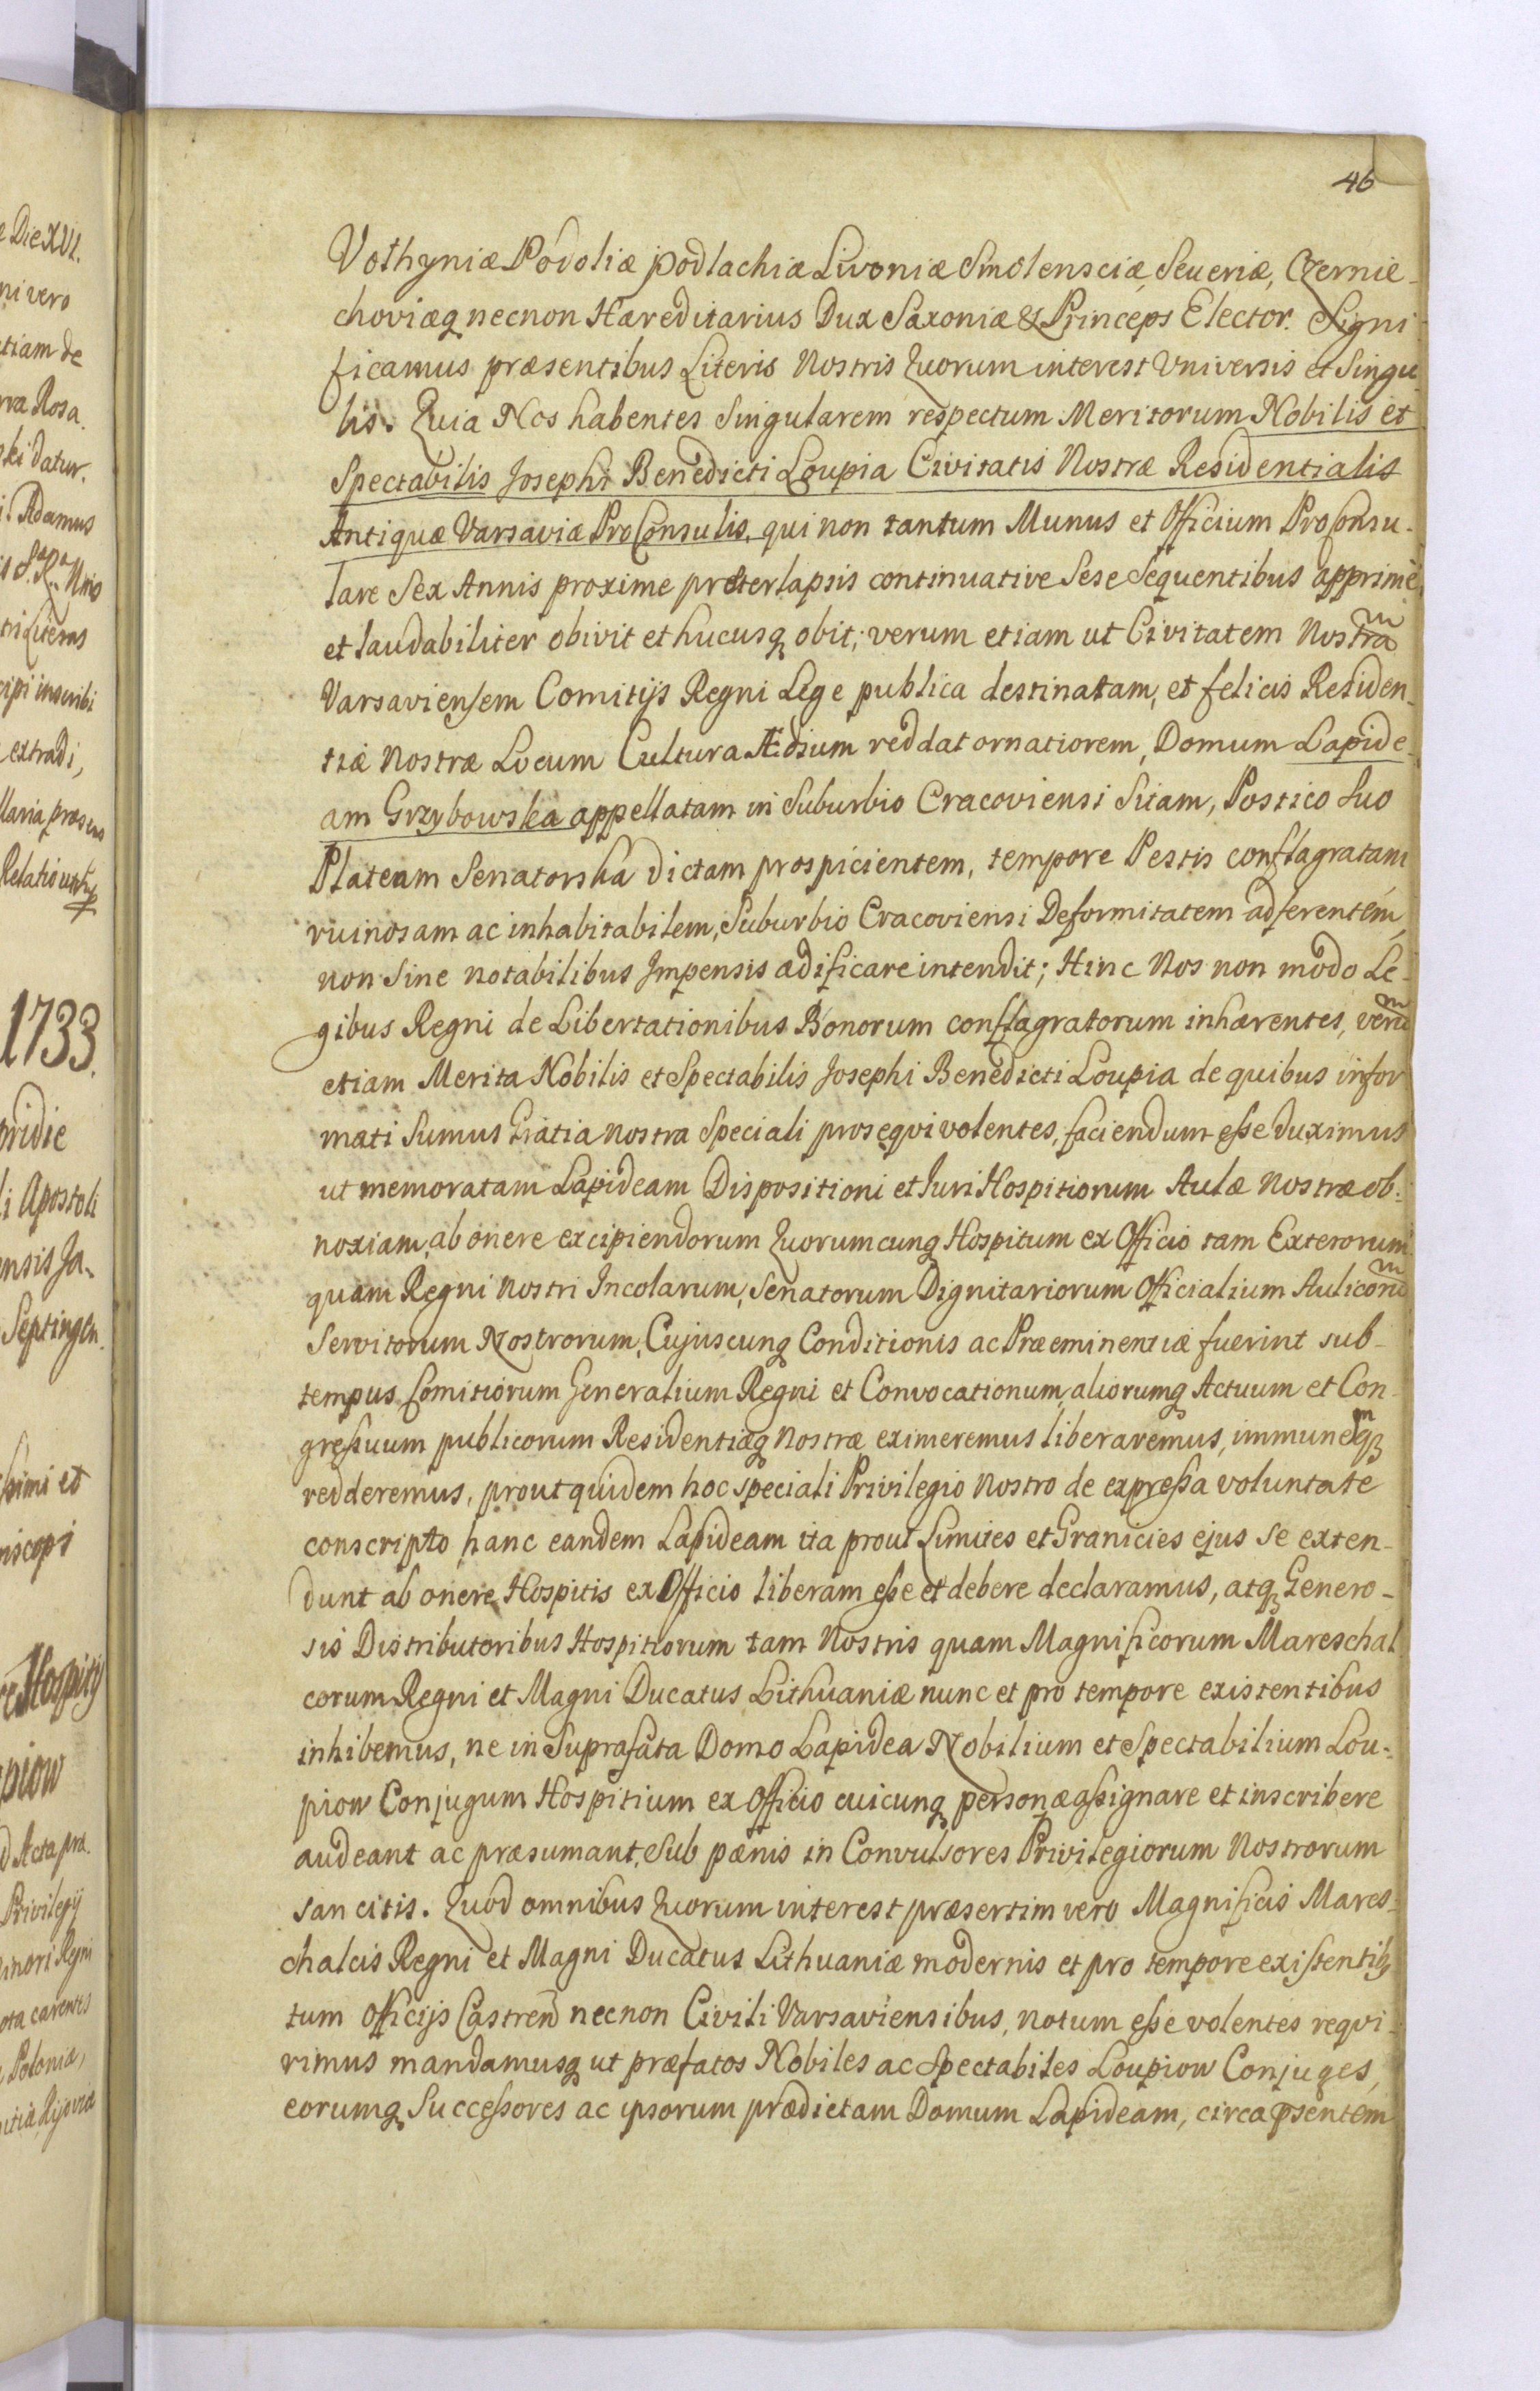 46
Volhyniæ Podoliæ podlachiæ Livoniæ Smolensciæ, Seueriæ, Czernie-
choviæq necnon Hæreditarius Dux Saxoniæ & Princeps Elector. Signi
ficamus præsentibus Literis Nostris Quorum interest Universis et Singu
lis. Quia Nos habentes Singularem respectum Meritorum Nobilis et
Spectabilis Josephi Benedicti Loupia Civitatis Nostræ Residentialis
Antiquæ Varsaviæ ProConsulis, qui non tantum Munus et Officium ProConsu-
lare Sex Annis proxime præterlapsis continuative Sese Sequentibus apprimè
et laudabiliter obivit et hucusq obit; verum etiam ut Civitatem Nostram
Varsaviensem Comitijs Regni Lege publica destinatam, et felicis Residen-
tiæ Nostræ Locum Cultura Ædium reddat ornatiorem, Domum Lapide-
am Grzybowska appellatam in Suburbio Cracoviensi Sitam, Postico Suo
Plateam Senatorska dictam prospicientem, tempore Pestis conflagratam
ruinosam ac inhabitabilem, Suburbio Cracoviensi Deformitatem adferentem,
non Sine notabilibus Impensis ædificare intendit; Hinc Nos non modo Le-
gibus Regni de Libertationibus Bonorum conflagratorum inhærentes, verum
etiam Merita Nobilis et Spectabilis Josephi Benedicti Loupia de quibus infor
mati Sumus Gratia nostra Speciali prosequi volentes, faciendum esse duximus
ut memoratam Lapideam Dispositioni et Juri Hospitiorum Aulæ Nostræ ob-
noxiam, ab onere excipiendorum Quorumcunq Hospitum ex Officio tam Exterorum
quam Regni Nostri Incolarum, Senatorum Dignitariorum Officialium Aulicorum
Servitorum Nostrorum, Cujuscunq Conditionis ac Præeminentiæ fuerint sub-
tempus Comitiorum Generalium Regni et Convocationum, aliorumq Actuum et Con-
gressuum publicorum Residentiæq Nostræ eximeremus liberaremus, immunemq
redderemus, prout quidem hoc speciali Privilegio Nostro de expressa voluntate
conscripto hanc eandem Lapideam ita prout Limites et Granicies ejus se exten-
dunt ab onere Hospitis ex Officio liberam esse et debere declaramus, atq Genero-
sis Distributoribus Hospitiorum tam Nostris quam Magnificorum Mareschal
corum Regni et Magni Ducatus Lithuaniæ nunc et pro tempore existentibus
inhibemus, ne in Suprafata Domo Lapidea Nobilium et Spectabilium Lou-
piow Conjugum Hospitium ex Officio cuicunq personæ assignare et inscribere
audeant ac præsumant, Sub pænis in Convulsores Privilegiorum Nostrorum
sancitis. Quod omnibus Quorum interest præsertim vero Magnificis Mares-
chalcis Regni et Magni Ducatus Lithuaniæ modernis et pro tempore existentibq
tum Officijs Castren necnon Civili Varsaviensibus, notum esse volentes requi-
rimus mandamusq ut præfatos Nobiles ac Spectabiles Loupiow Conjuges,
eorumq Successores ac ipsorum prædictam Domum Lapideam, circa psentem
e Die XVI.
ni vero
tiam de
rva Rosa
ski datur.
Adamus
tri Literas
cipi inscribi
extradi,
1733.
pridie
li Apostoli
ensis Ja-
Septingen
ssimi et
niscopi
re Hospitij
piow
d Acta præ
Privilegij
inori Regni
ota carentes
Poloniæ,